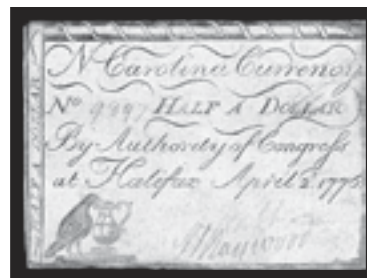 N Carolina Currency
No 9997 HALF A DOLLAR
By Authority of Congress
at Halifax April 2. 1776